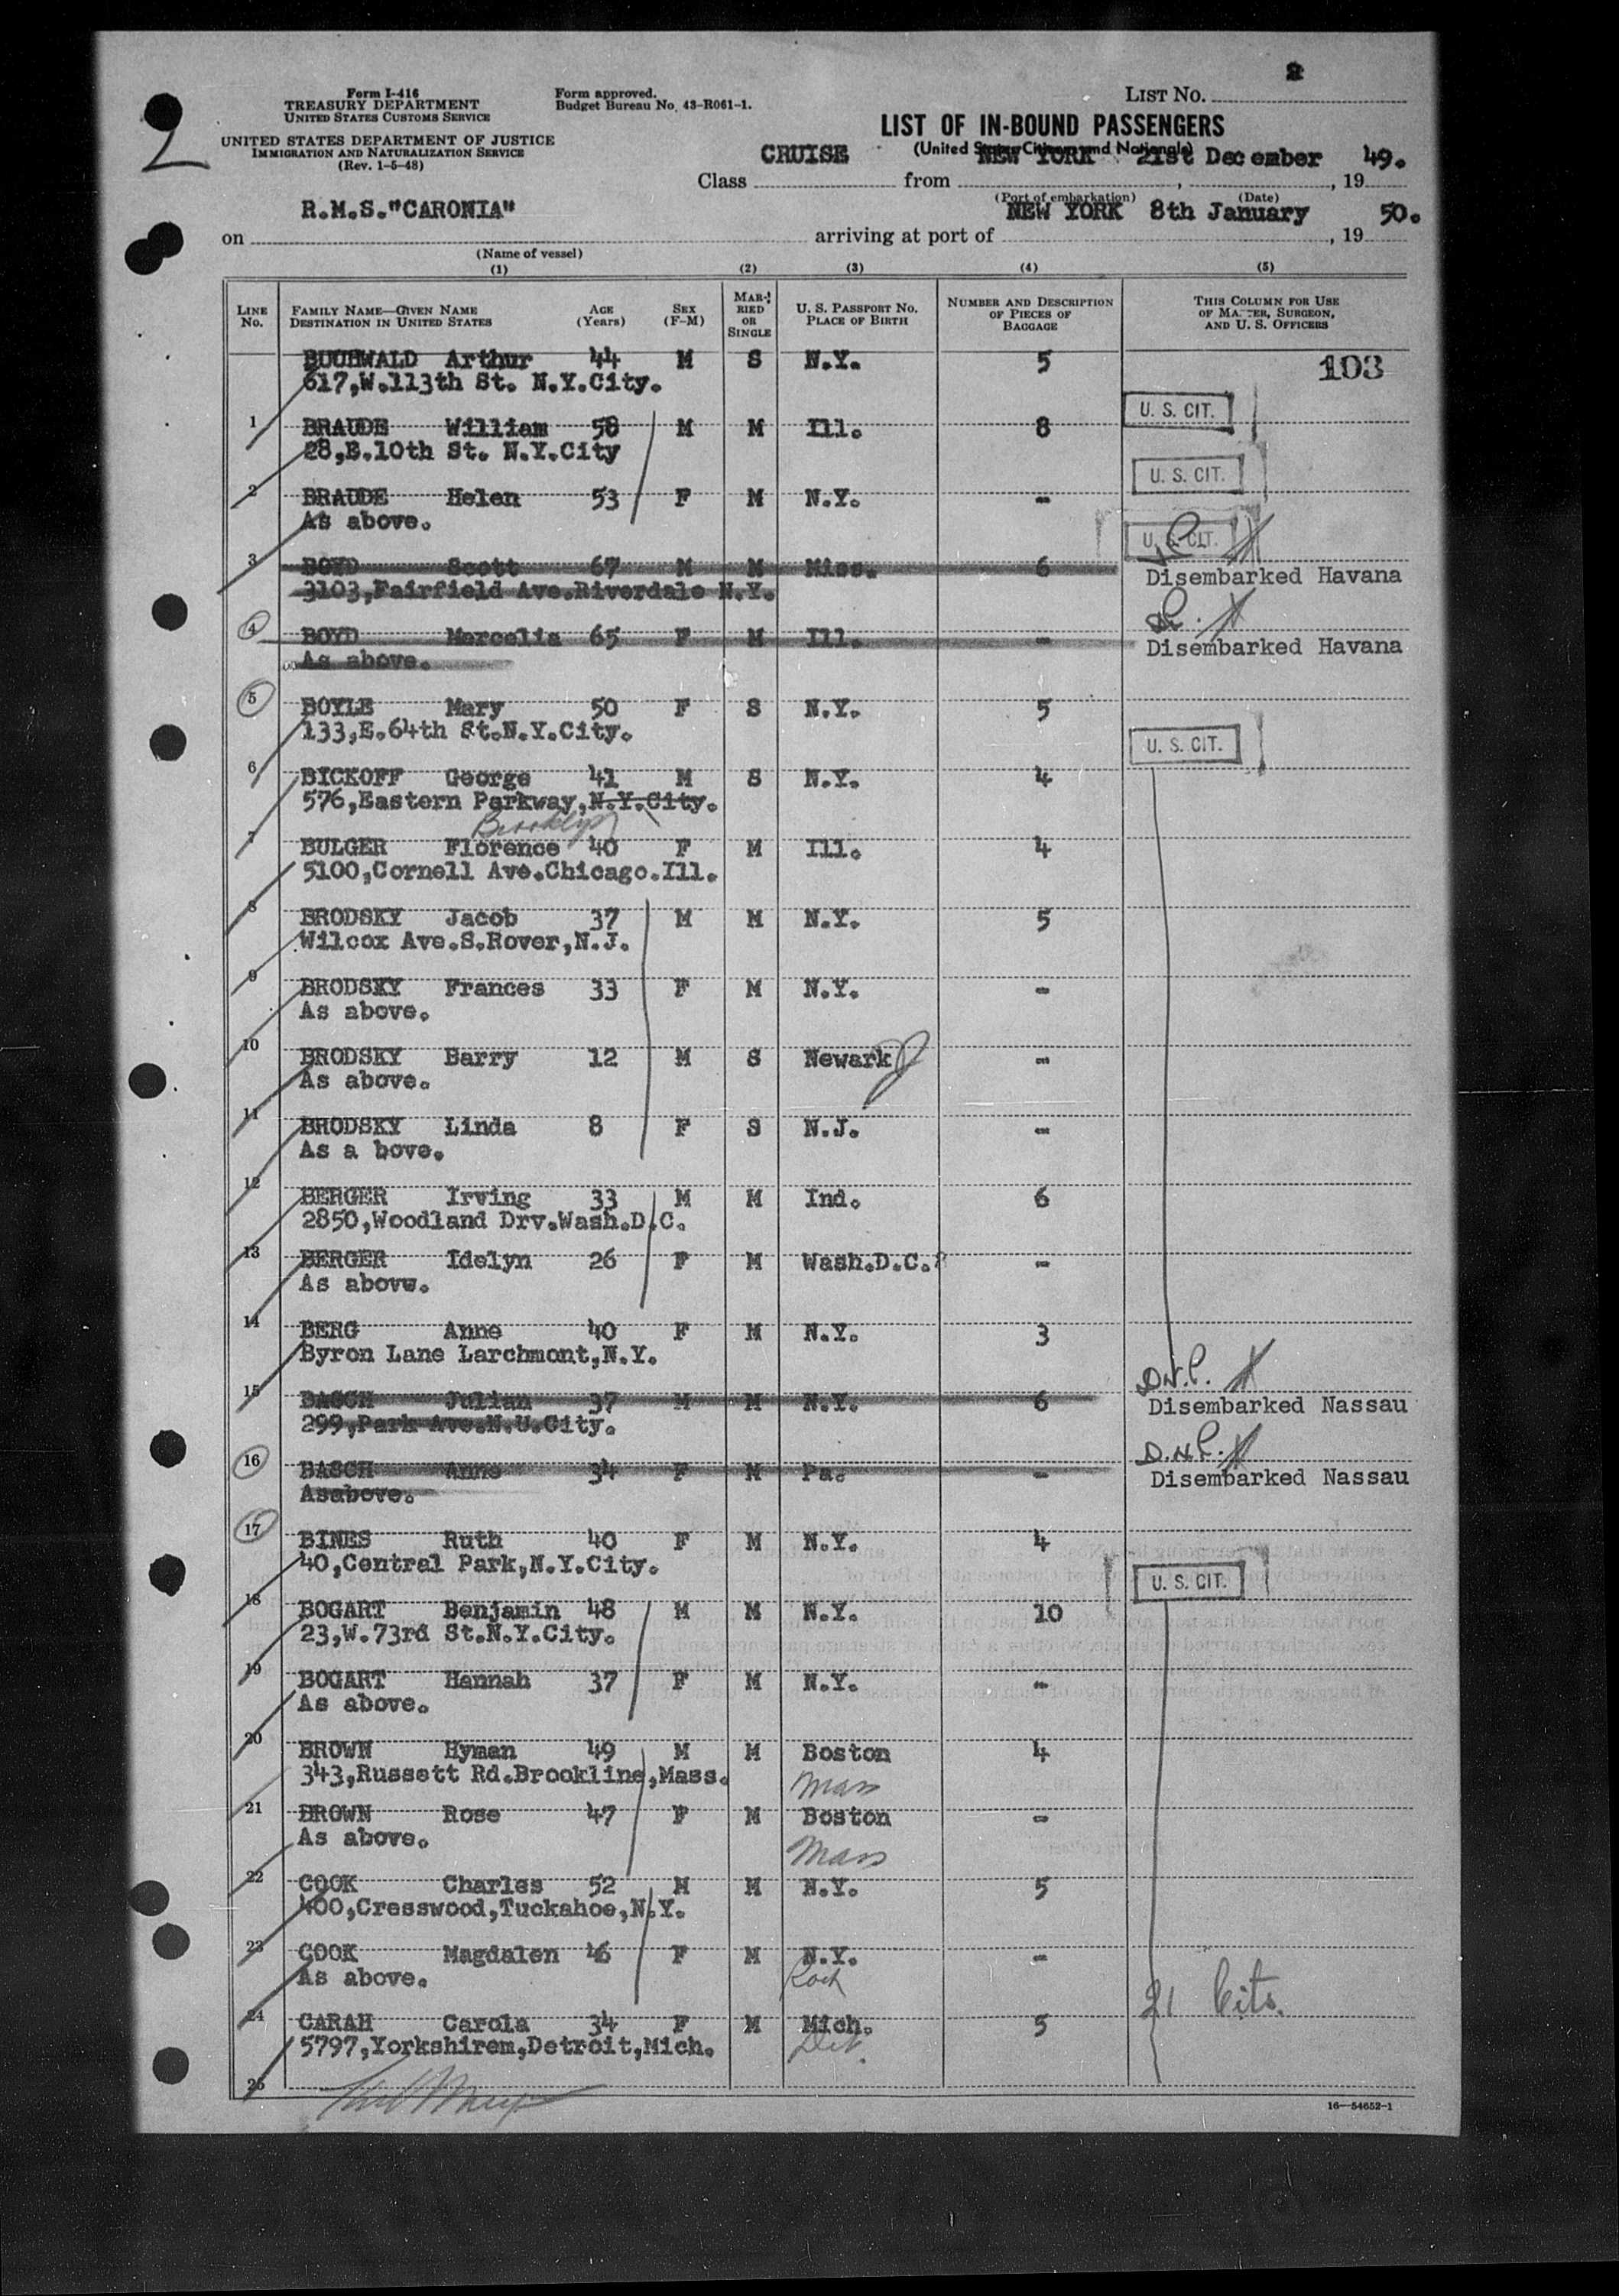 2
2
Form I-416
TREASURY DEPARTMENT
UNITED STATES CUSTOMS SERVICE
UNITED STATES DEPARTMENT OF JUSTICE
IMMIGRATION AND NATURALIZATION SERVICE
(Rev. 1-5-48)
Form approved.
Budget Bureau No. 43-R061-1.
LIST NO.
LIST OF IN-BOUND PASSENGERS
(United States Citizens and Nationals)
Class CRUISE from NEW YORK, 21st December, 19 49.
(Port of embarkation) (Date)
on R.M.S."CARONIA" arriving at port of NEW YORK 8th January, 19 50.
(Name of vessel)
(1) (2) (3) (4) (5)
LINE NO. FAMILY NAME—GIVEN NAME DESTINATION IN UNITED STATES AGE (Years) SEX (F-M) MARRIED OR SINGLE U. S. PASSPORT NO. PLACE OF BIRTH NUMBER AND DESCRIPTION OF PIECES OF BAGGAGE THIS COLUMN FOR USE OF MASTER, SURGEON, AND U. S. OFFICERS
BUCHWALD Arthur 44 M S N.Y. 5 103
617,W.113th St. N.Y.City.
U. S. CIT.
1 BRAUDE William 58 M M Ill. 8
28,E.10th St. N.Y.City
U. S. CIT.
2 BRAUDE Helen 53 F M N.Y. -
As above.
U. S. CIT.
3 BOYD Scott 67 M M Miss. 6 Disembarked Havana
3103,Fairfield Ave.Riverdale N.Y.
4 BOYD Mercelia 65 F M Ill. - Disembarked Havana
As above.
5 BOYLE Mary 50 F S N.Y. 5
133,E.64th St.N.Y.City.
U. S. CIT.
6 BICKOFF George 41 M S N.Y. 4
576,Eastern Parkway,N.Y.City.
Brooklyn
7 BULGER Florence 40 F M Ill. 4
5100,Cornell Ave.Chicago.Ill.
8 BRODSKY Jacob 37 M M N.Y. 5
Wilcox Ave.S.Rover,N.J.
9 BRODSKY Frances 33 F M N.Y. -
As above.
10 BRODSKY Barry 12 M S Newark -
As above.
11 BRODSKY Linda 8 F S N.J. -
As a bove.
12 BERGER Irving 33 M M Ind. 6
2850,Woodland Drv.Wash.D.C.
13 BERGER Idelyn 26 F M Wash.D.C. -
As above.
14 BERG Anne 40 F M N.Y. 3
Byron Lane Larchmont,N.Y.
D.N.P.
15 BASCH Julian 37 M M N.Y. 6 Disembarked Nassau
299,Park Ave.N.U.City.
D.N.P.
16 BASCH Anne 34 F M Pa. - Disembarked Nassau
Asabove.
17 BINES Ruth 40 F M N.Y. 4
40,Central Park,N.Y.City.
U. S. CIT.
18 BOGART Benjamin 48 M M N.Y. 10
23,W.73rd St.N.Y.City.
19 BOGART Hannah 37 F M N.Y. -
As above.
20 BROWN Hyman 49 M M Boston 4
343,Russett Rd.Brookline,Mass. Mass
21 BROWN Rose 47 F M Boston -
As above. Mass
22 COOK Charles 52 M M N.Y. 5
400,Cresswood,Tuckahoe,N.Y.
23 COOK Magdalen 46 F M N.Y. -
As above. Roch
21 Cits.
24 CARAH Carola 34 F M Mich. 5
5797,Yorkshirem,Detroit,Mich. Det.
25
16—54652-1